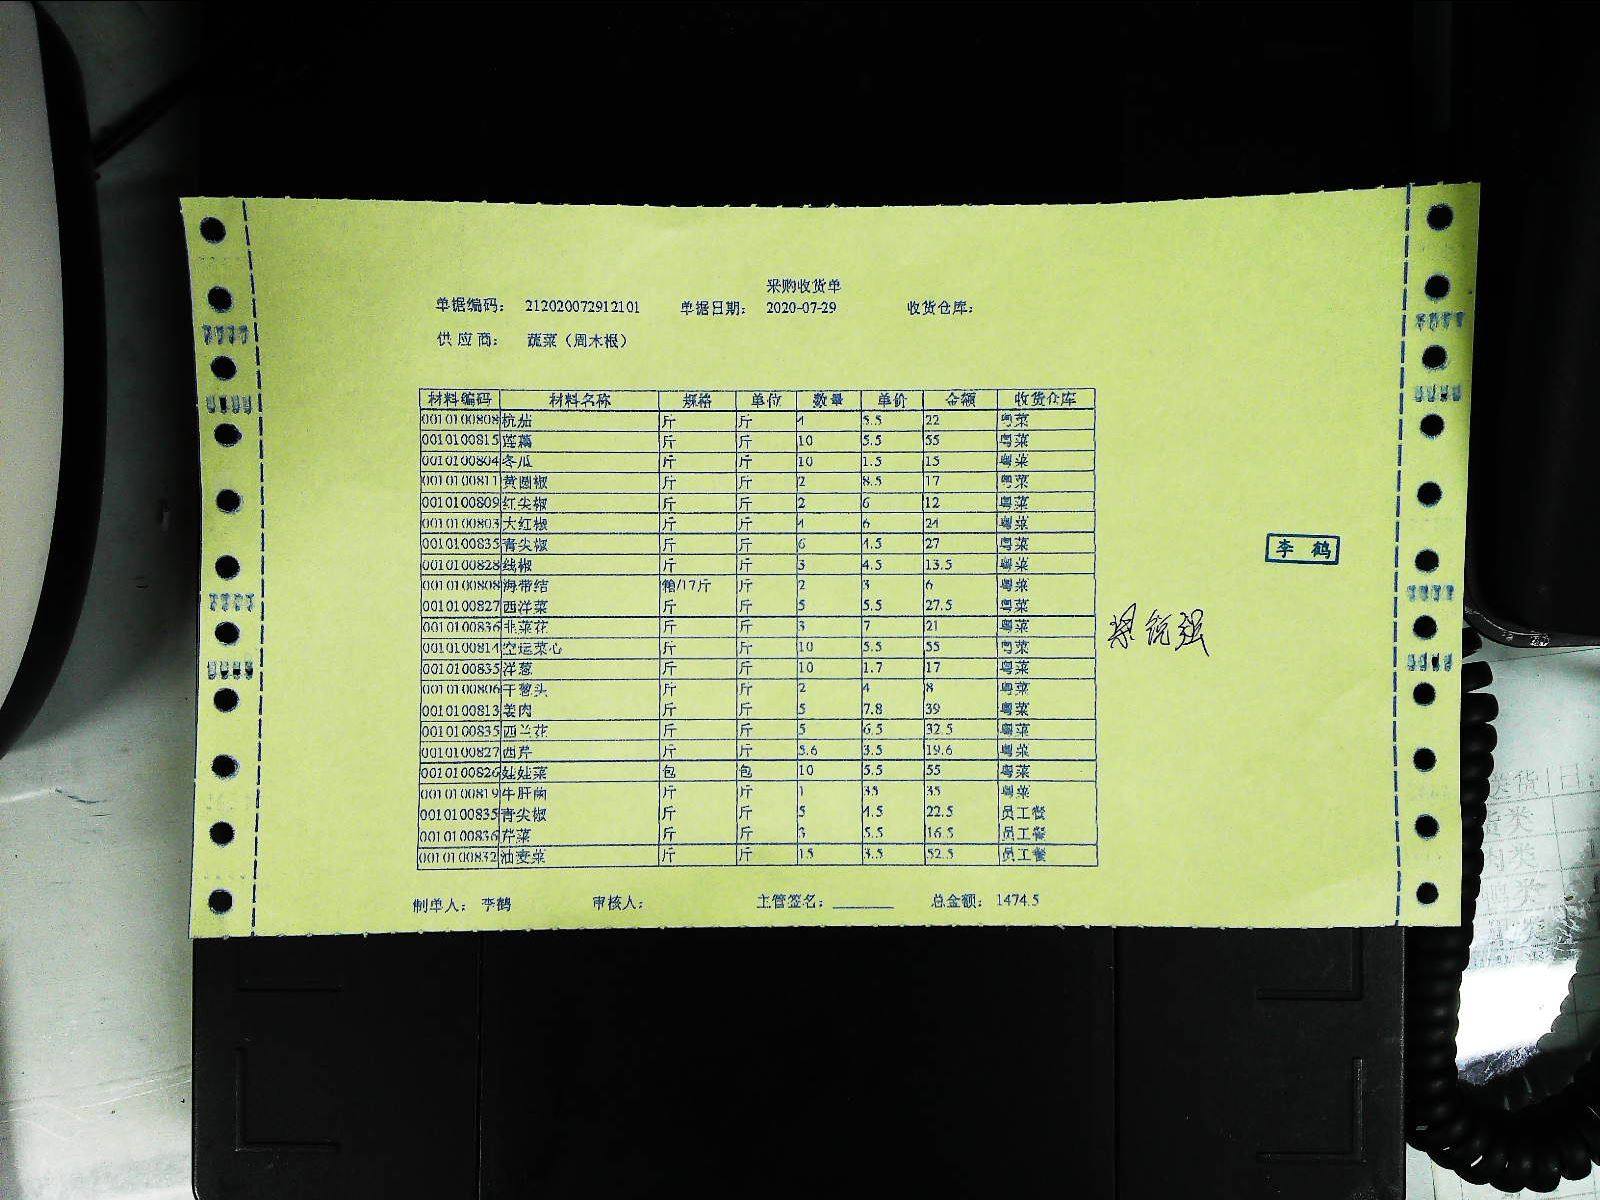 采购收货单
单据编码： 212020072912101 单据日期： 2020-07-29 收货仓库：
供 应 商： 蔬菜（周木根）
材料编码 材料名称 规格 单位 数量 单价 金额 收货仓库
0010100808 杭茄 斤 斤 4 5.5 22 粤菜
0010100815 莲藕 斤 斤 10 5.5 55 粤菜
0010100804 冬瓜 斤 斤 10 1.5 15 粤菜
0010100811 黄圆椒 斤 斤 2 8.5 17 粤菜
0010100809 红尖椒 斤 斤 2 6 12 粤菜
0010100803 大红椒 斤 斤 4 6 24 粤菜
0010100835 青尖椒 斤 斤 6 4.5 27 粤菜
0010100828 线椒 斤 斤 3 4.5 13.5 粤菜
0010100808 海带结 箱/17斤 斤 2 3 6 粤菜
0010100827 西洋菜 斤 斤 5 5.5 27.5 粤菜
0010100836 韭菜花 斤 斤 3 7 21 粤菜
0010100814 空运菜心 斤 斤 10 5.5 55 粤菜
0010100835 洋葱 斤 斤 10 1.7 17 粤菜
0010100806 干葱头 斤 斤 2 4 8 粤菜
0010100813 姜肉 斤 斤 5 7.8 39 粤菜
0010100835 西兰花 斤 斤 5 6.5 32.5 粤菜
0010100827 西芹 斤 斤 5.6 3.5 19.6 粤菜
0010100826 娃娃菜 包 包 10 5.5 55 粤菜
0010100819 牛肝菌 斤 斤 1 35 35 粤菜
0010100835 青尖椒 斤 斤 5 4.5 22.5 员工餐
0010100836 芹菜 斤 斤 3 5.5 16.5 员工餐
0010100832 油麦菜 斤 斤 15 3.5 52.5 员工餐
李 鹤
制单人： 李鹤 审核人： 主管签名： 总金额： 1474.5
送货 日